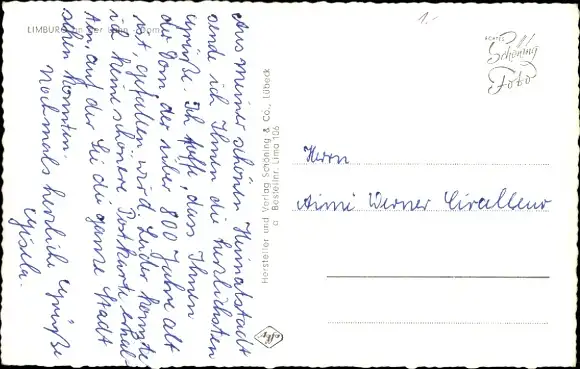 LIMBURG an der Lahn - Dom
Aus meiner schönen Heimatstadt
sende ich Ihnen die herzlichsten
Grüße. Ich hoffe, dass Ihnen
der Dom der über 800 Jahre alt
ist, gefallen wird. Leider konnte
ich keine schönere Postkarte erhal-
ten, auf der Sie die ganze Stadt
sehen konnten.
Nochmals herzliche Grüße
Gisela.
Hersteller und Verlag Schöning & Co., Lübeck
Bestellnr. Lima 106
1.-
ECHTES
Schöning
Foto
Herrn
Aimé Werner